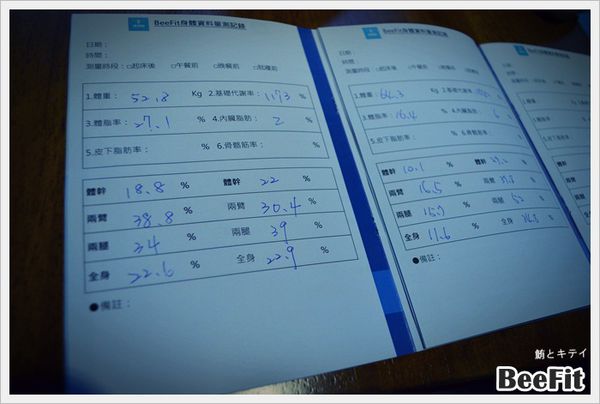 BeeFit身體資料量測記錄
日期：
時間：
測量時段：□起床後 □午餐前 □晚餐前 □就寢前
1.體重： 52.8 Kg 2.基礎代謝率： 1173 %
3.體脂率： 27.1 % 4.內臟脂肪： 2 %
5.皮下脂肪率： % 6.骨骼筋率： %
體幹 18.8 % 體幹 22 %
兩臂 38.8 % 兩臂 30.4 %
兩腿 34 % 兩腿 39 %
全身 22.6 % 全身 22.9 %
●備註：
BeeFit身體資料量測記錄
日期：
時間：
測量時段：□起床後 □午餐前
1.體重： 64.3 Kg 2.基礎代謝率：
3.體脂率： 16.4 % 4.內臟脂肪： 6 %
5.皮下脂肪率： % 6.骨骼筋率：
體幹 10.1 % 體幹 %
兩臂 16.5 % 兩臂 %
兩腿 15.9 % 兩腿 52 %
全身 11.6 % 全身 %
●備註：
鮪とキテイ
BeeFit